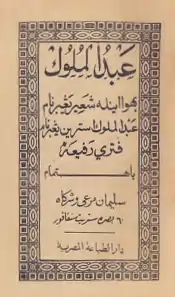 عبد الملوك
بهوا اينله شعير يڠبرنام
عبد الملوك استرين يڠبرنام
فتري رفيعه
باهتمام
سليمان مرعي وشركاه
٦٠ بصره ستريت سنغافور
دار الطباعة المصرية